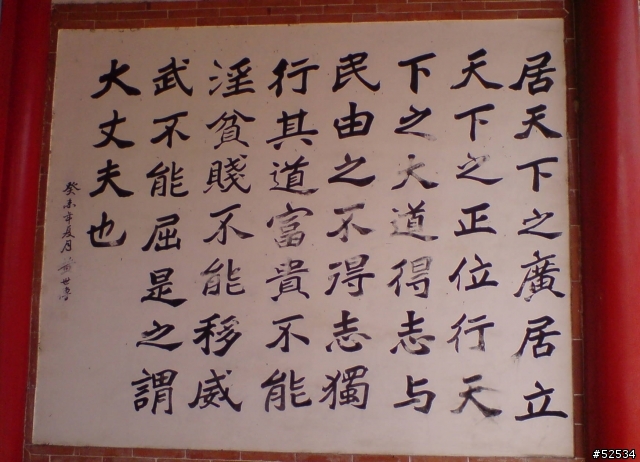 居天下之廣居立
天下之正位行天
下之大道得志与
民由之不得志獨
行其道富貴不能
淫貧賤不能移威
武不能屈是之謂
大丈夫也
癸未年夏月
#52534